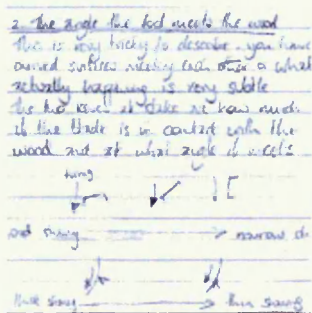 2. The angle the tool meets the wood
This is very tricky to describe - you have
curved surfaces meeting each other & what
actually happening is very subtle
The two issues at stake are how much
of the blade is in contact with the
wood and at what angle it meets
shaving
thick shaving thin shaving